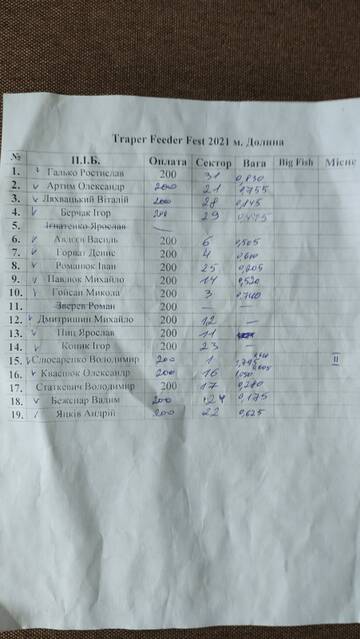 Traper Feeder Fest 2021 м. Долина
№ П.І.Б. Оплата Сектор Вага Big Fish Місце
1. Галько Ростислав 200 31 0,830
2. Артим Олександр 200 21 1,755
3. Ляхвацький Віталій 200 28 0,145
4. Берчак Ігор 200 29 0,475
5. Ігнатенко Ярослав — —
6. Авдєєв Василь 200 6 0,505
7. Горват Денис 200 4
8. Романюк Іван 200 25 0,205
9. Павлюк Михайло 200 14 0,520
10. Гойсан Микола 200 3 0,740
11. Зверев Роман 200 — —
12. Дмитришин Михайло 200 12 —
13. Пиц Ярослав 200 11
14. Коник Ігор 200 23 —
15. Слюсаренко Володимир 200 1 II
16. Квасюк Олександр 200 16
17. Статкевич Володимир 200 17
18. Бежснар Вадим 200 24 0,175
19. Яцків Андрій 200 22 0,625